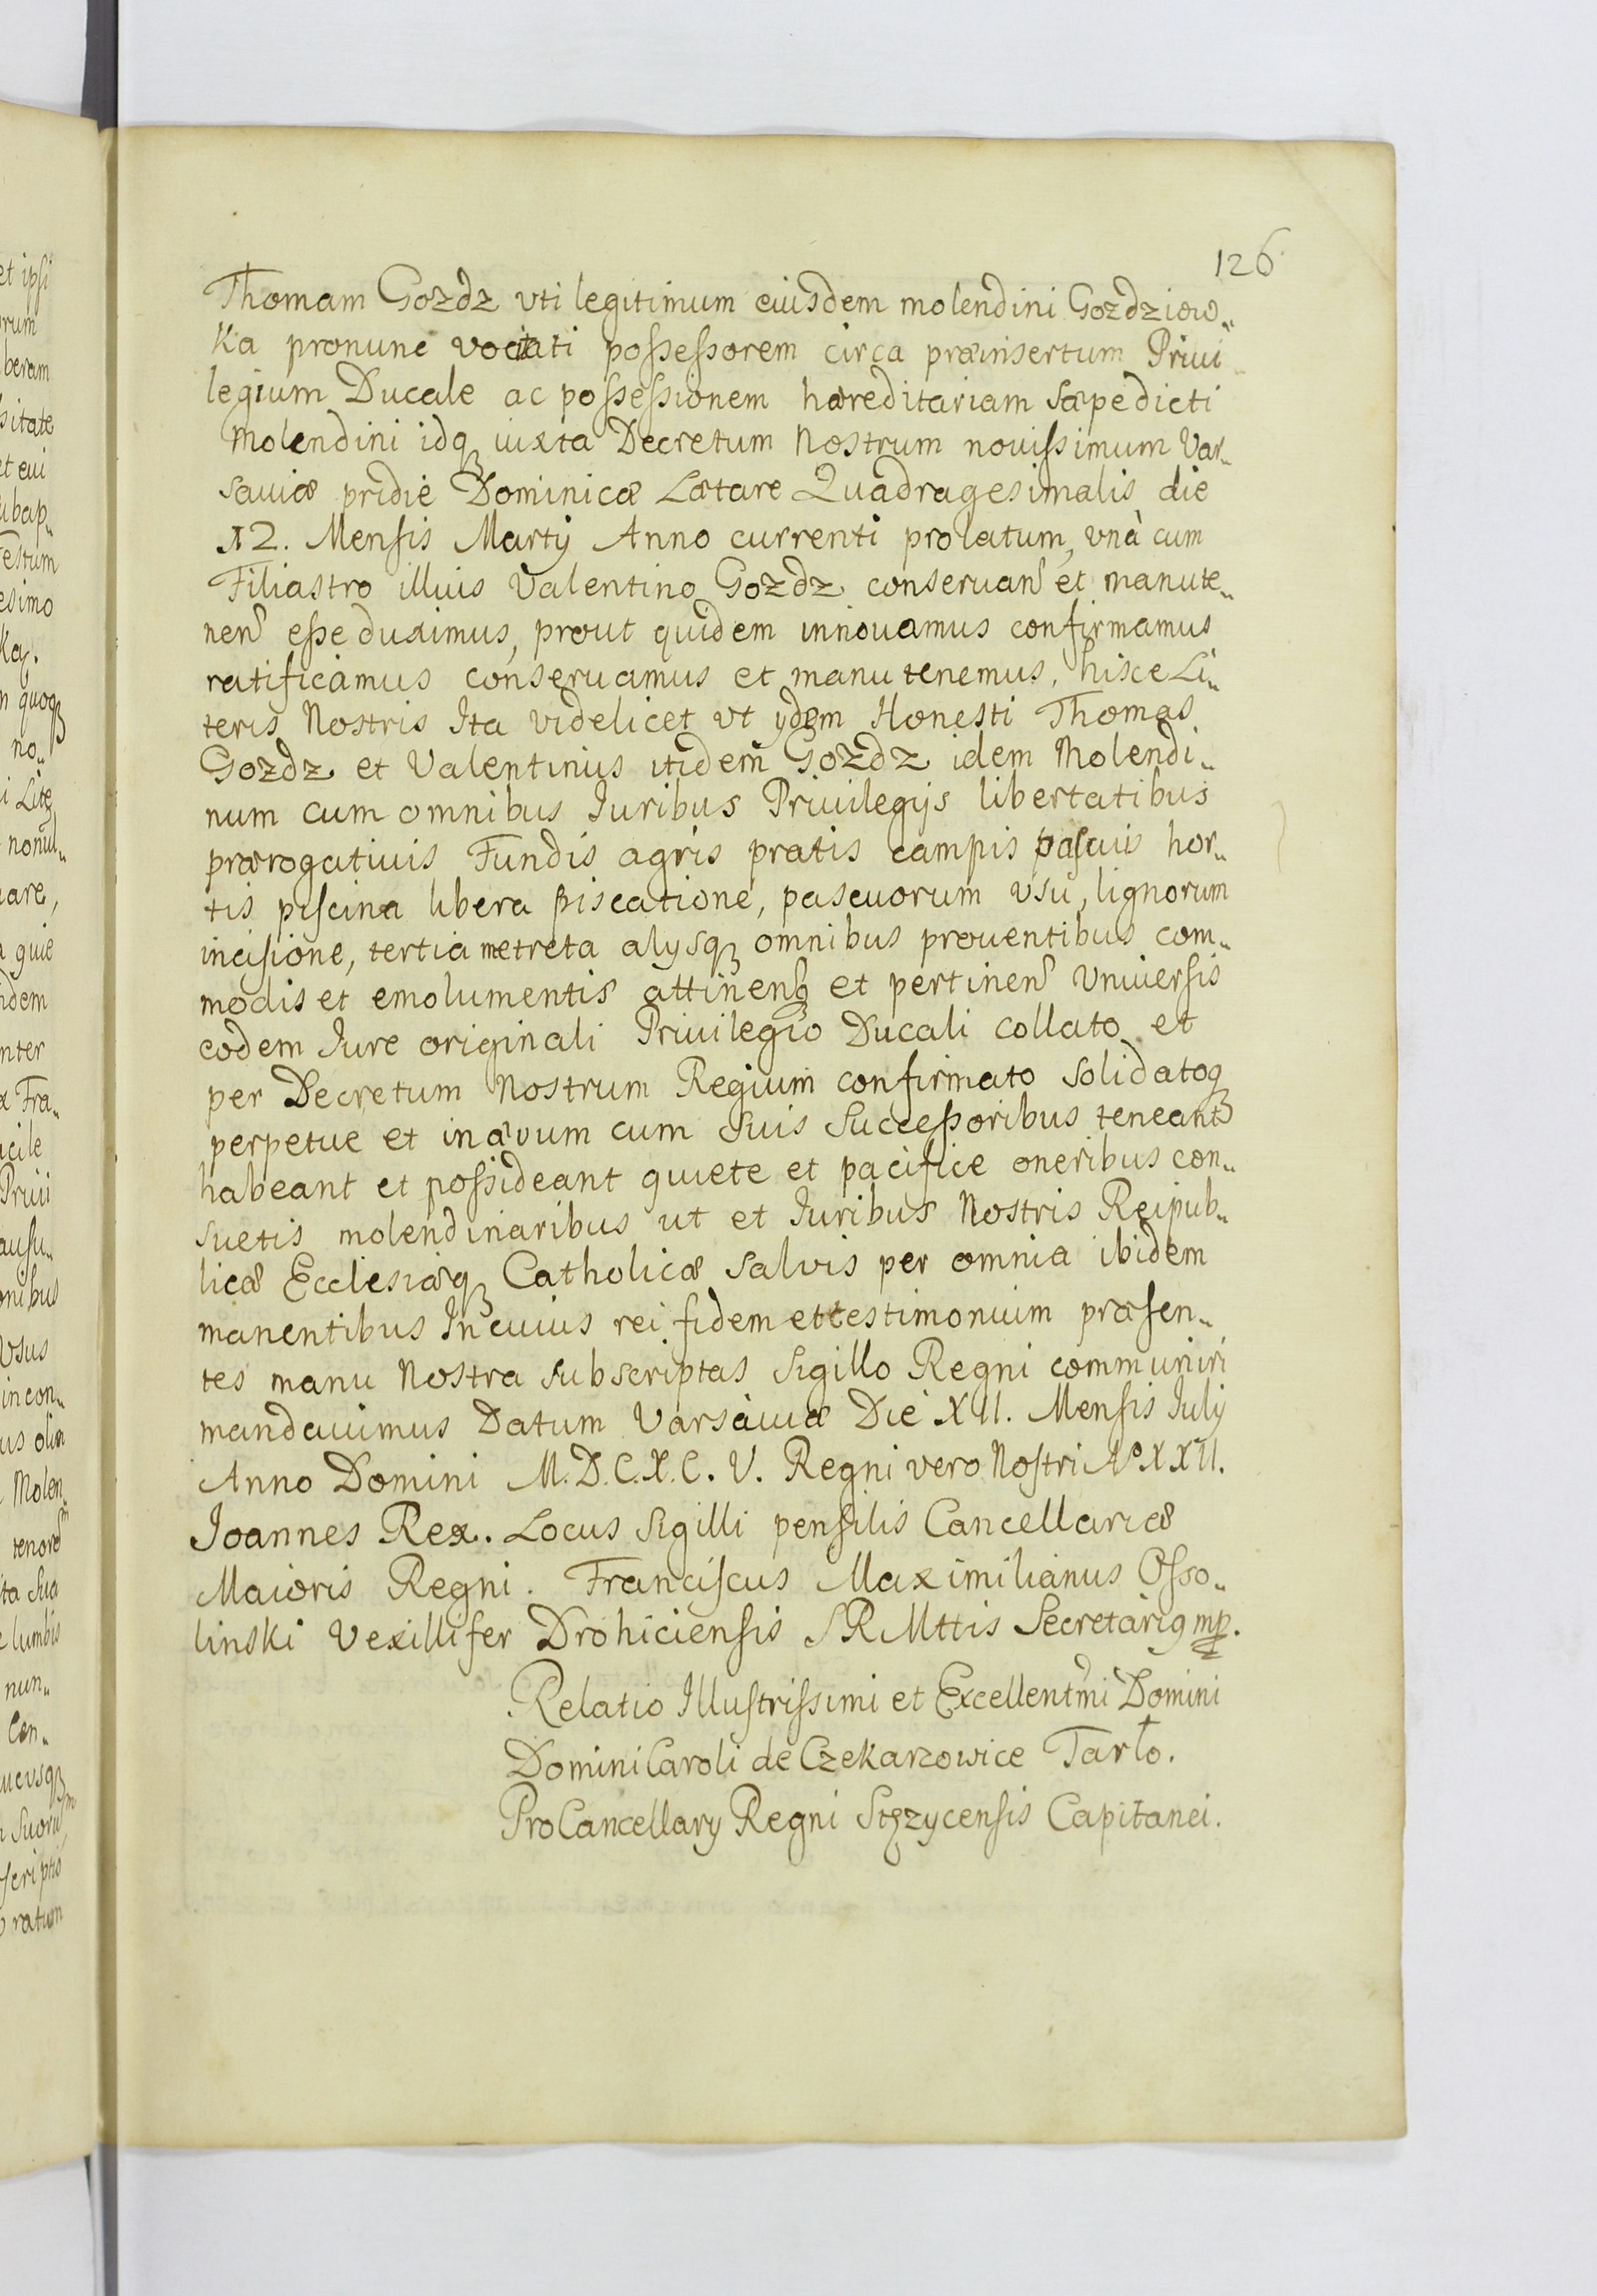 126
Thomam Gozdz vti legitimum eiusdem molendini Gozdziow„
ka pronunc vocitati possessorem circa præinsertum Priui„
legium Ducale ac possessionem hæreditariam sæpedicti
molendini idq iuxta Decretum Nostrum nouissimum Var„
sauiæ pridie Dominicæ Lætare Quadragesimalis die
12. Mensis Martij Anno currenti prolatum, vnà cum
Filiastro illius Valentino Gozdz conseruan et manute„
nen esse duximus, prout quidem innouamus confirmamus
ratificamus conseruamus et manutenemus, hisce Li„
teris Nostris Ita videlicet vt ydem Honesti Thomas
Gozdz et Valentinus itidem Gozdz idem Molendi„
num cum omnibus Iuribus Priuilegijs libertatibus
prærogatiuis Fundis agris pratis campis pascuis hor„
tis piscina libera piscatione, pascuorum vsu, lignorum
incisione, tertia metreta alysq omnibus prouentibus com„
modis et emolumentis attinenbq et pertinen Vniuersis
eodem Iure originali Priuilegio Ducali collato et
per Decretum Nostrum Regium confirmato solidatoq
perpetue et in ævum cum suis Successoribus teneant
habeant et possideant quiete et pacifice oneribus con„
suetis molendinaribus ut et Iuribus Nostris Reipub„
licæ Ecclesiæq Catholicæ salvis per omnia ibidem
manentibus In cuius rei fidem et testimonium præsen„
tes manu Nostra subscriptas Sigillo Regni communiri
mandauimus Datum Varsàuiæ Die XII. Mensis July
Anno Domini M.D.C.X.C.V. Regni vero Nostri Aº XXII.
Joannes Rex. Locus Sigilli pensilis Cancellariæ
Maioris Regni. Franciscus Maximilianus Osso„
linski Vexillifer Drohiciensis S R Mttis Secretarig mp.
Relatio Illustrissimi et Excellentmi Domini
Domini Caroli de Czekarzowice Tarło.
ProCancellary Regni Stęzycensis Capitanei.